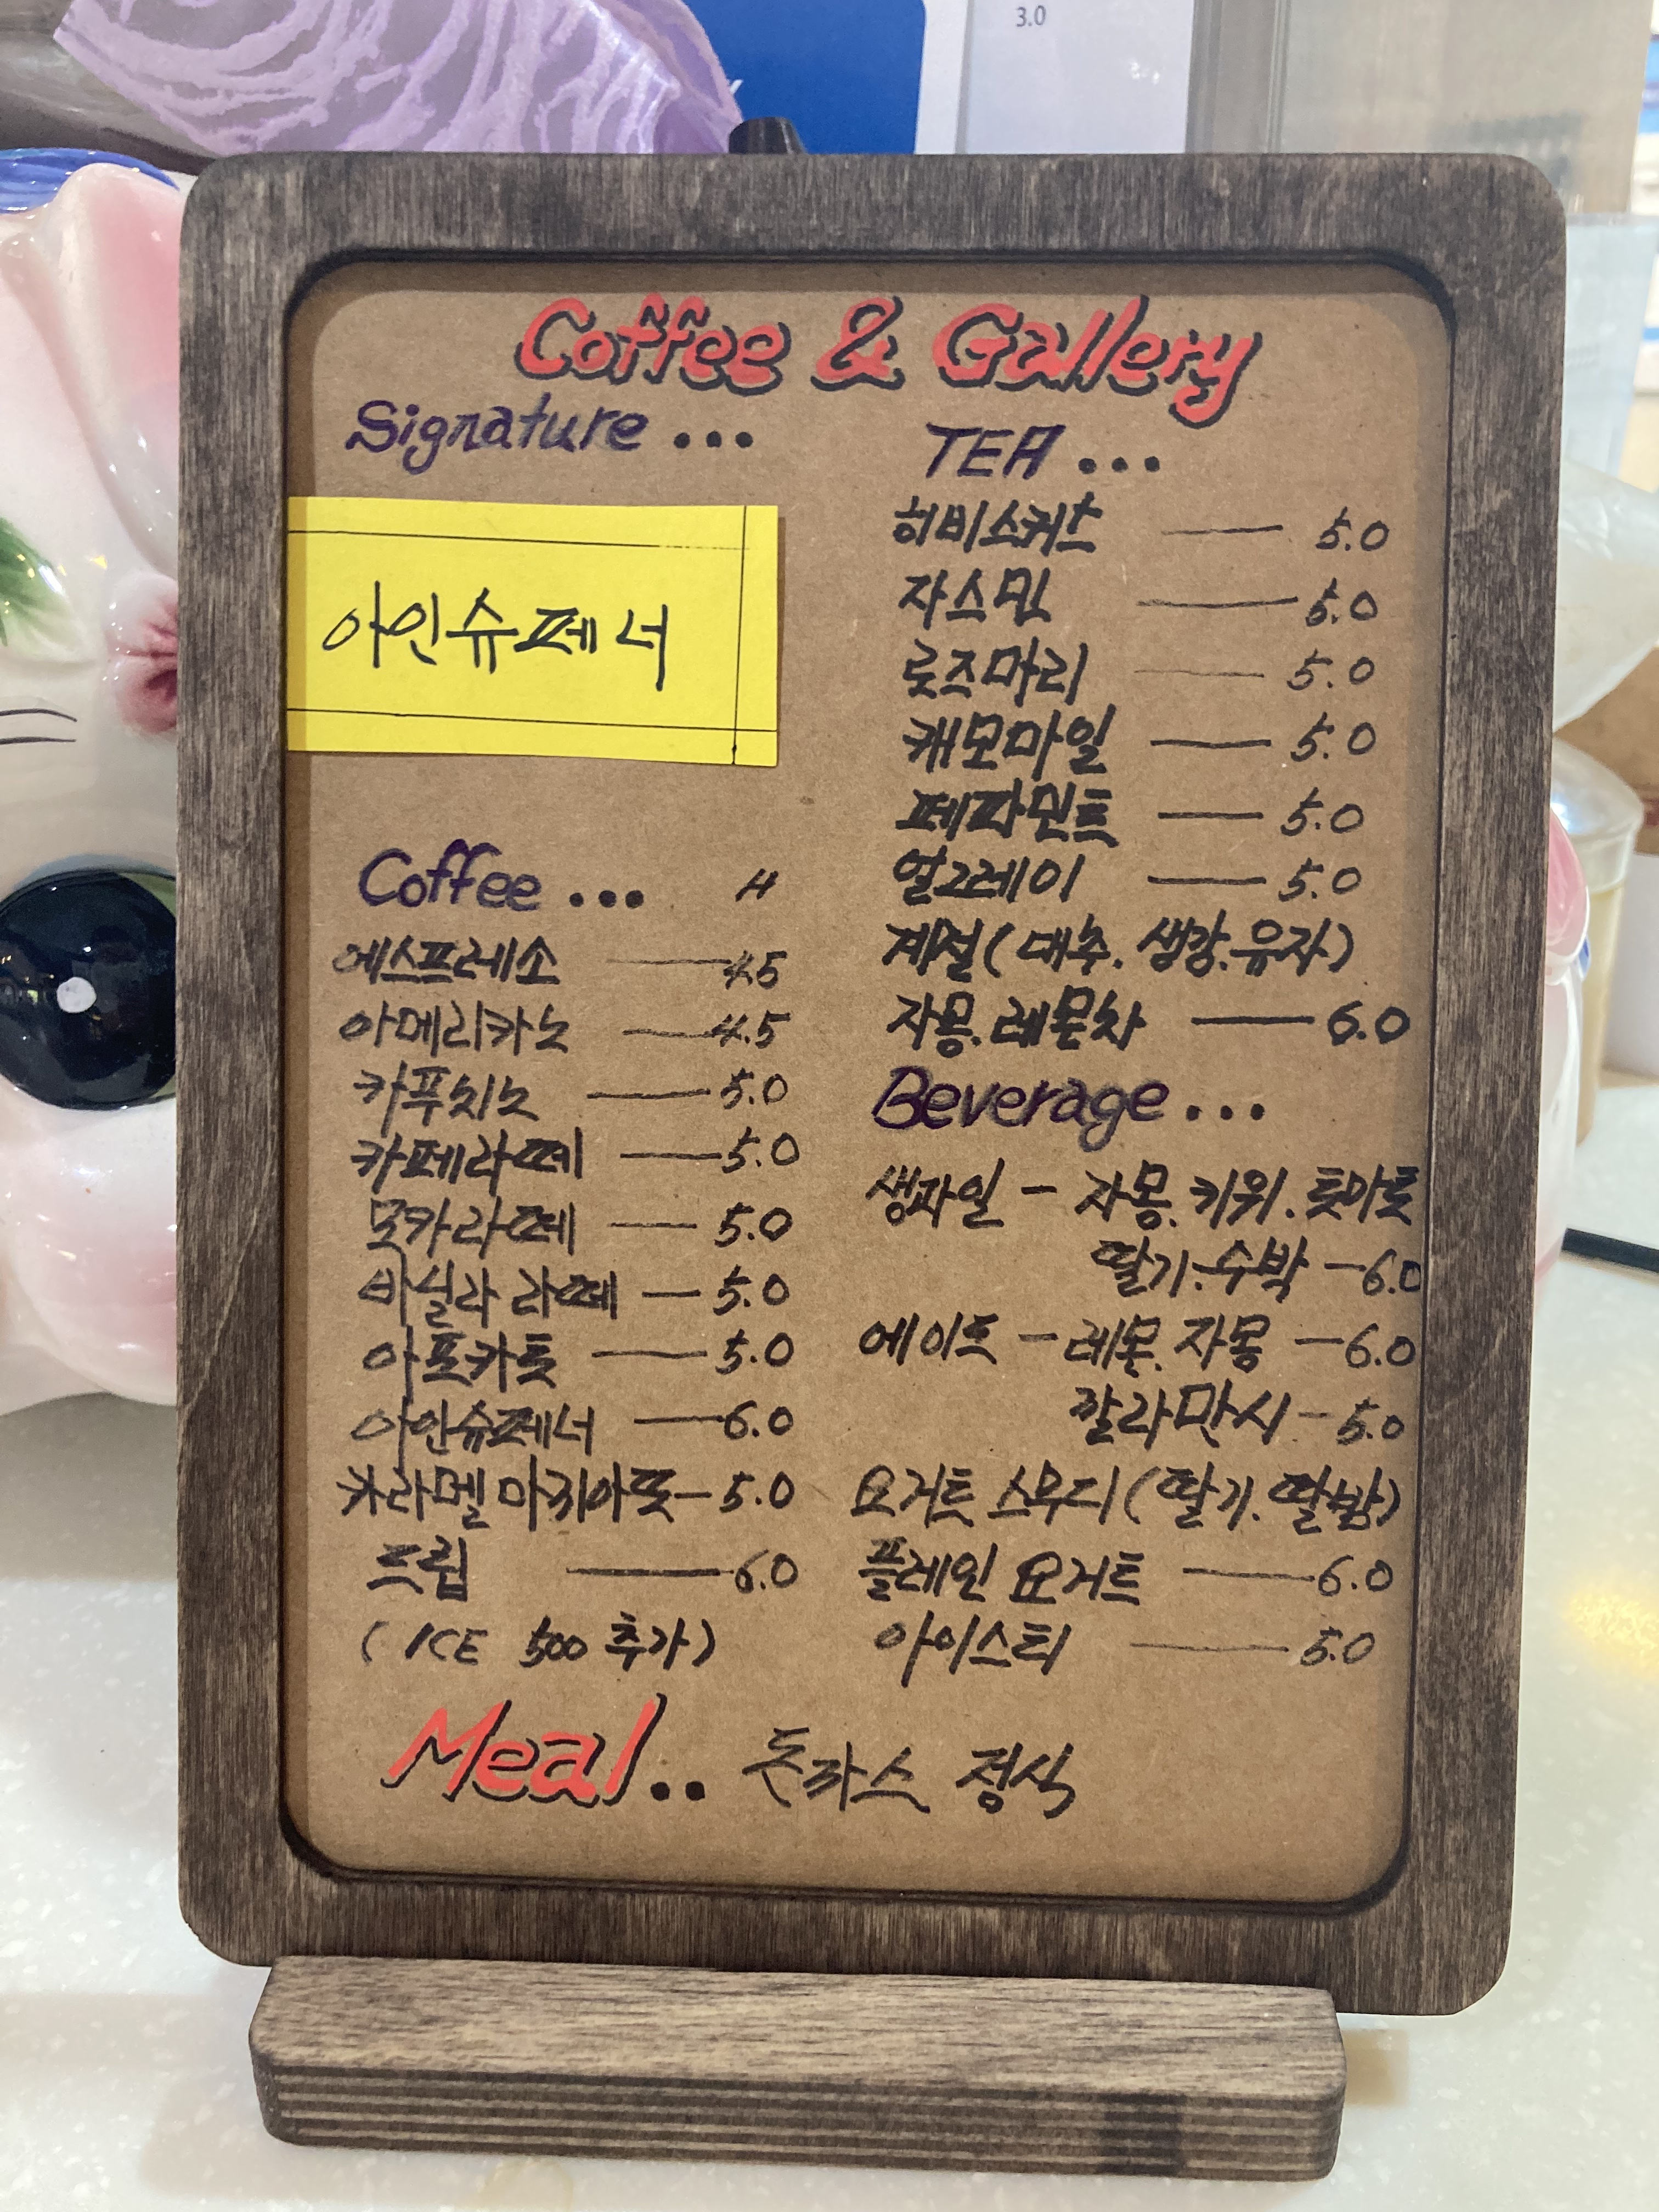 3.0
Coffee & Gallery
Signature ...
아인슈페너
Coffee ... H
에스프레소 4.5
아메리카노 4.5
카푸치노 5.0
카페라떼 5.0
못카라떼 5.0
바닐라 라떼 5.0
아포카토 5.0
아인슈페너 6.0
카라멜 마끼아또 5.0
드립 6.0
( ICE 500 추가)
TEA ...
히비스커스 5.0
자스민 5.0
로즈마리 5.0
캐모마일 5.0
페파민트 5.0
얼그레이 5.0
계절 ( 대추. 생강. 유자)
자몽. 레몬차 6.0
Beverage ...
생과일 - 자몽. 키위. 토마토
딸기. 수박 - 6.0
에이드 - 레몬. 자몽 - 6.0
깔라만시 - 5.0
요거트 스무디 ( 딸기. 딸밤)
플레인 요거트 6.0
아이스티 5.0
Meal.. 돈까스 정식